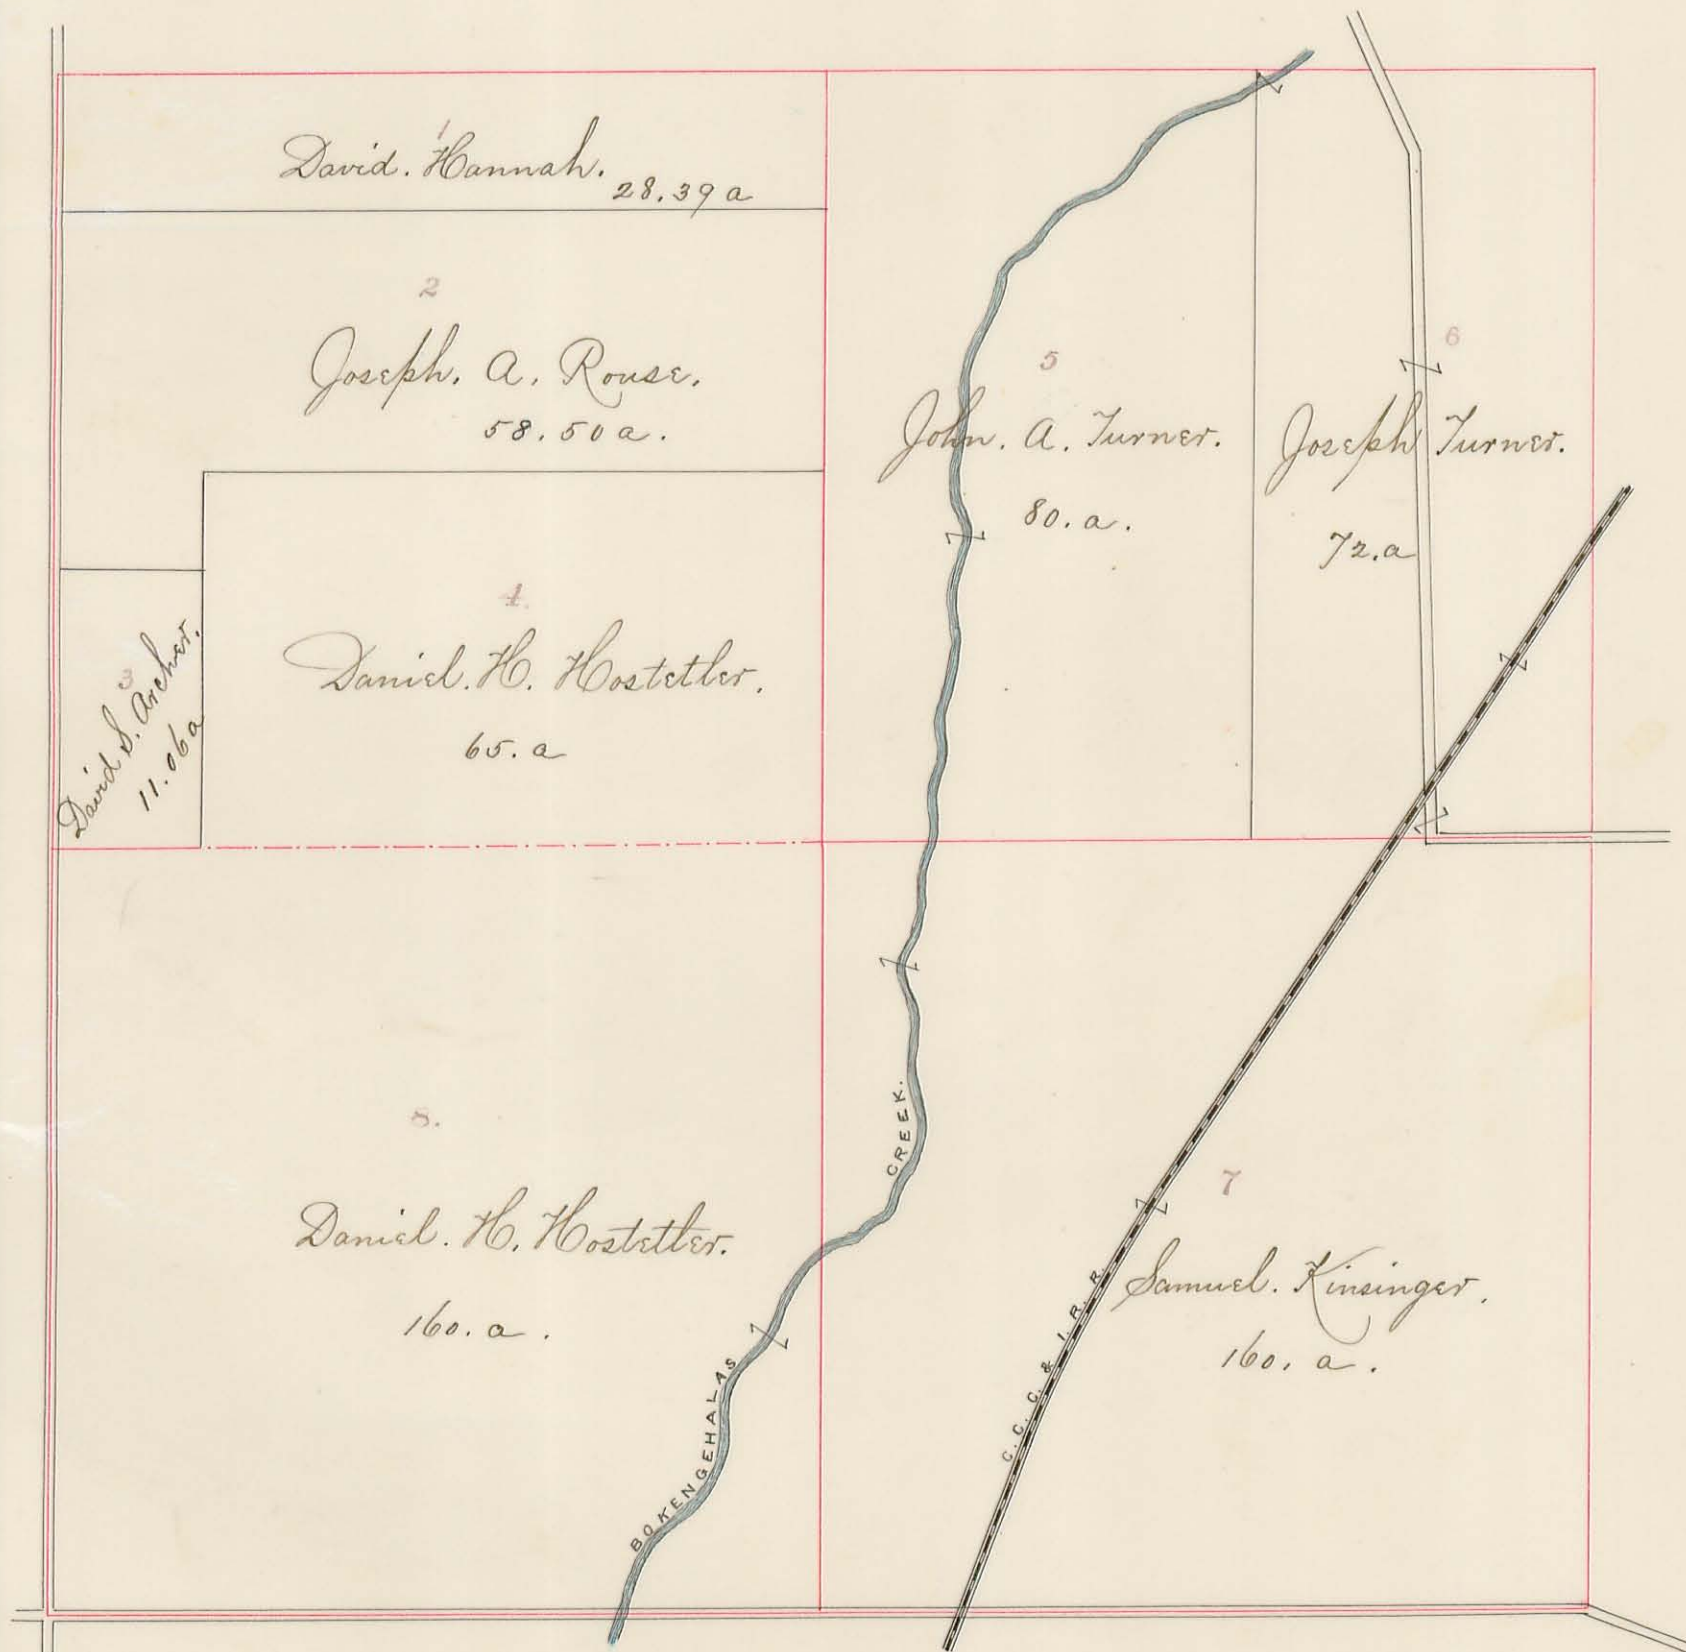 1
David. Hannah.
28.39 a
2
Joseph. A. Rouse.
58.50 a.
3
David S. Archer.
11.06 a
4.
Daniel. H. Hostetler.
65. a
5
John. A. Turner.
80. a.
6
Joseph Turner.
72. a
8.
Daniel. H. Hostetler.
160. a.
BOKENGEHALAS
CREEK.
7
Samuel. Kinsinger.
160. a.
C. C. C. & I. R. R.